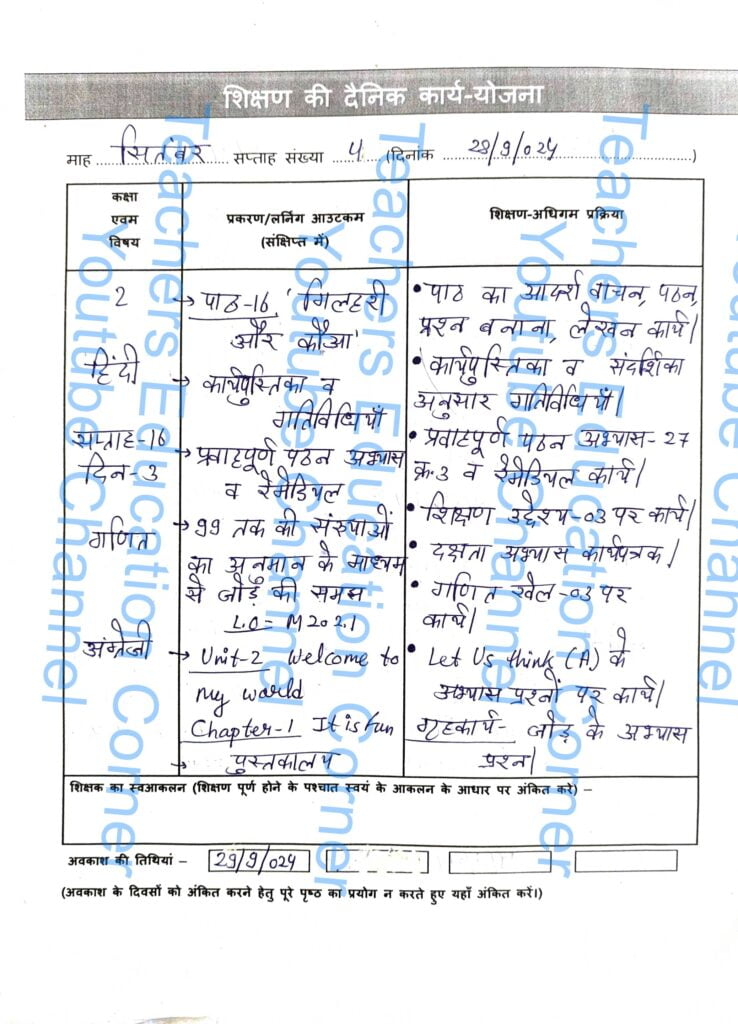 शिक्षण की दैनिक कार्य-योजना
माह सितंबर सप्ताह संख्या 4 (दिनांक 28/9/024)
कक्षा
एवम
विषय
प्रकरण/लर्निंग आउटकम
(संक्षिप्त में)
शिक्षण-अधिगम प्रक्रिया
2
हिंदी
सप्ताह-16
दिन-3
→ पाठ-16 'गिलहरी
और कौआ'
→ कार्यपुस्तिका व
गतिविधियाँ
→ प्रवाहपूर्ण पठन अभ्यास
व रेमेडियल
• पाठ का आदर्श वाचन, पठन,
प्रश्न बनाना, लेखन कार्य।
• कार्यपुस्तिका व संदर्शिका
अनुसार गतिविधियाँ।
• प्रवाहपूर्ण पठन अभ्यास-27
क्र.3 व रेमेडियल कार्य।
गणित
→ 99 तक की संख्याओं
का अनुमान के माध्यम
से जोड़ की समझ
L.O = M202.1
• शिक्षण उद्देश्य-03 पर कार्य।
• दक्षता अभ्यास कार्यपत्रक।
• गणित खेल-03 पर
कार्य।
अंग्रेजी
→ Unit-2 Welcome to
my world
Chapter-1 It is fun
→ पुस्तकालय
• Let Us think (A) के
अभ्यास प्रश्नों पर कार्य।
गृहकार्य- जोड़ के अभ्यास
प्रश्न।
शिक्षक का स्वआकलन (शिक्षण पूर्ण होने के पश्चात स्वयं के आकलन के आधार पर अंकित करे) –
अवकाश की तिथियां – 29/9/024
(अवकाश के दिवसों को अंकित करने हेतु पूरे पृष्ठ का प्रयोग न करते हुए यहाँ अंकित करें।)
Teachers Education Corner
Youtube Channel
Teachers Education Corner
Youtube Channel
Teachers Education Corner
Youtube Channel